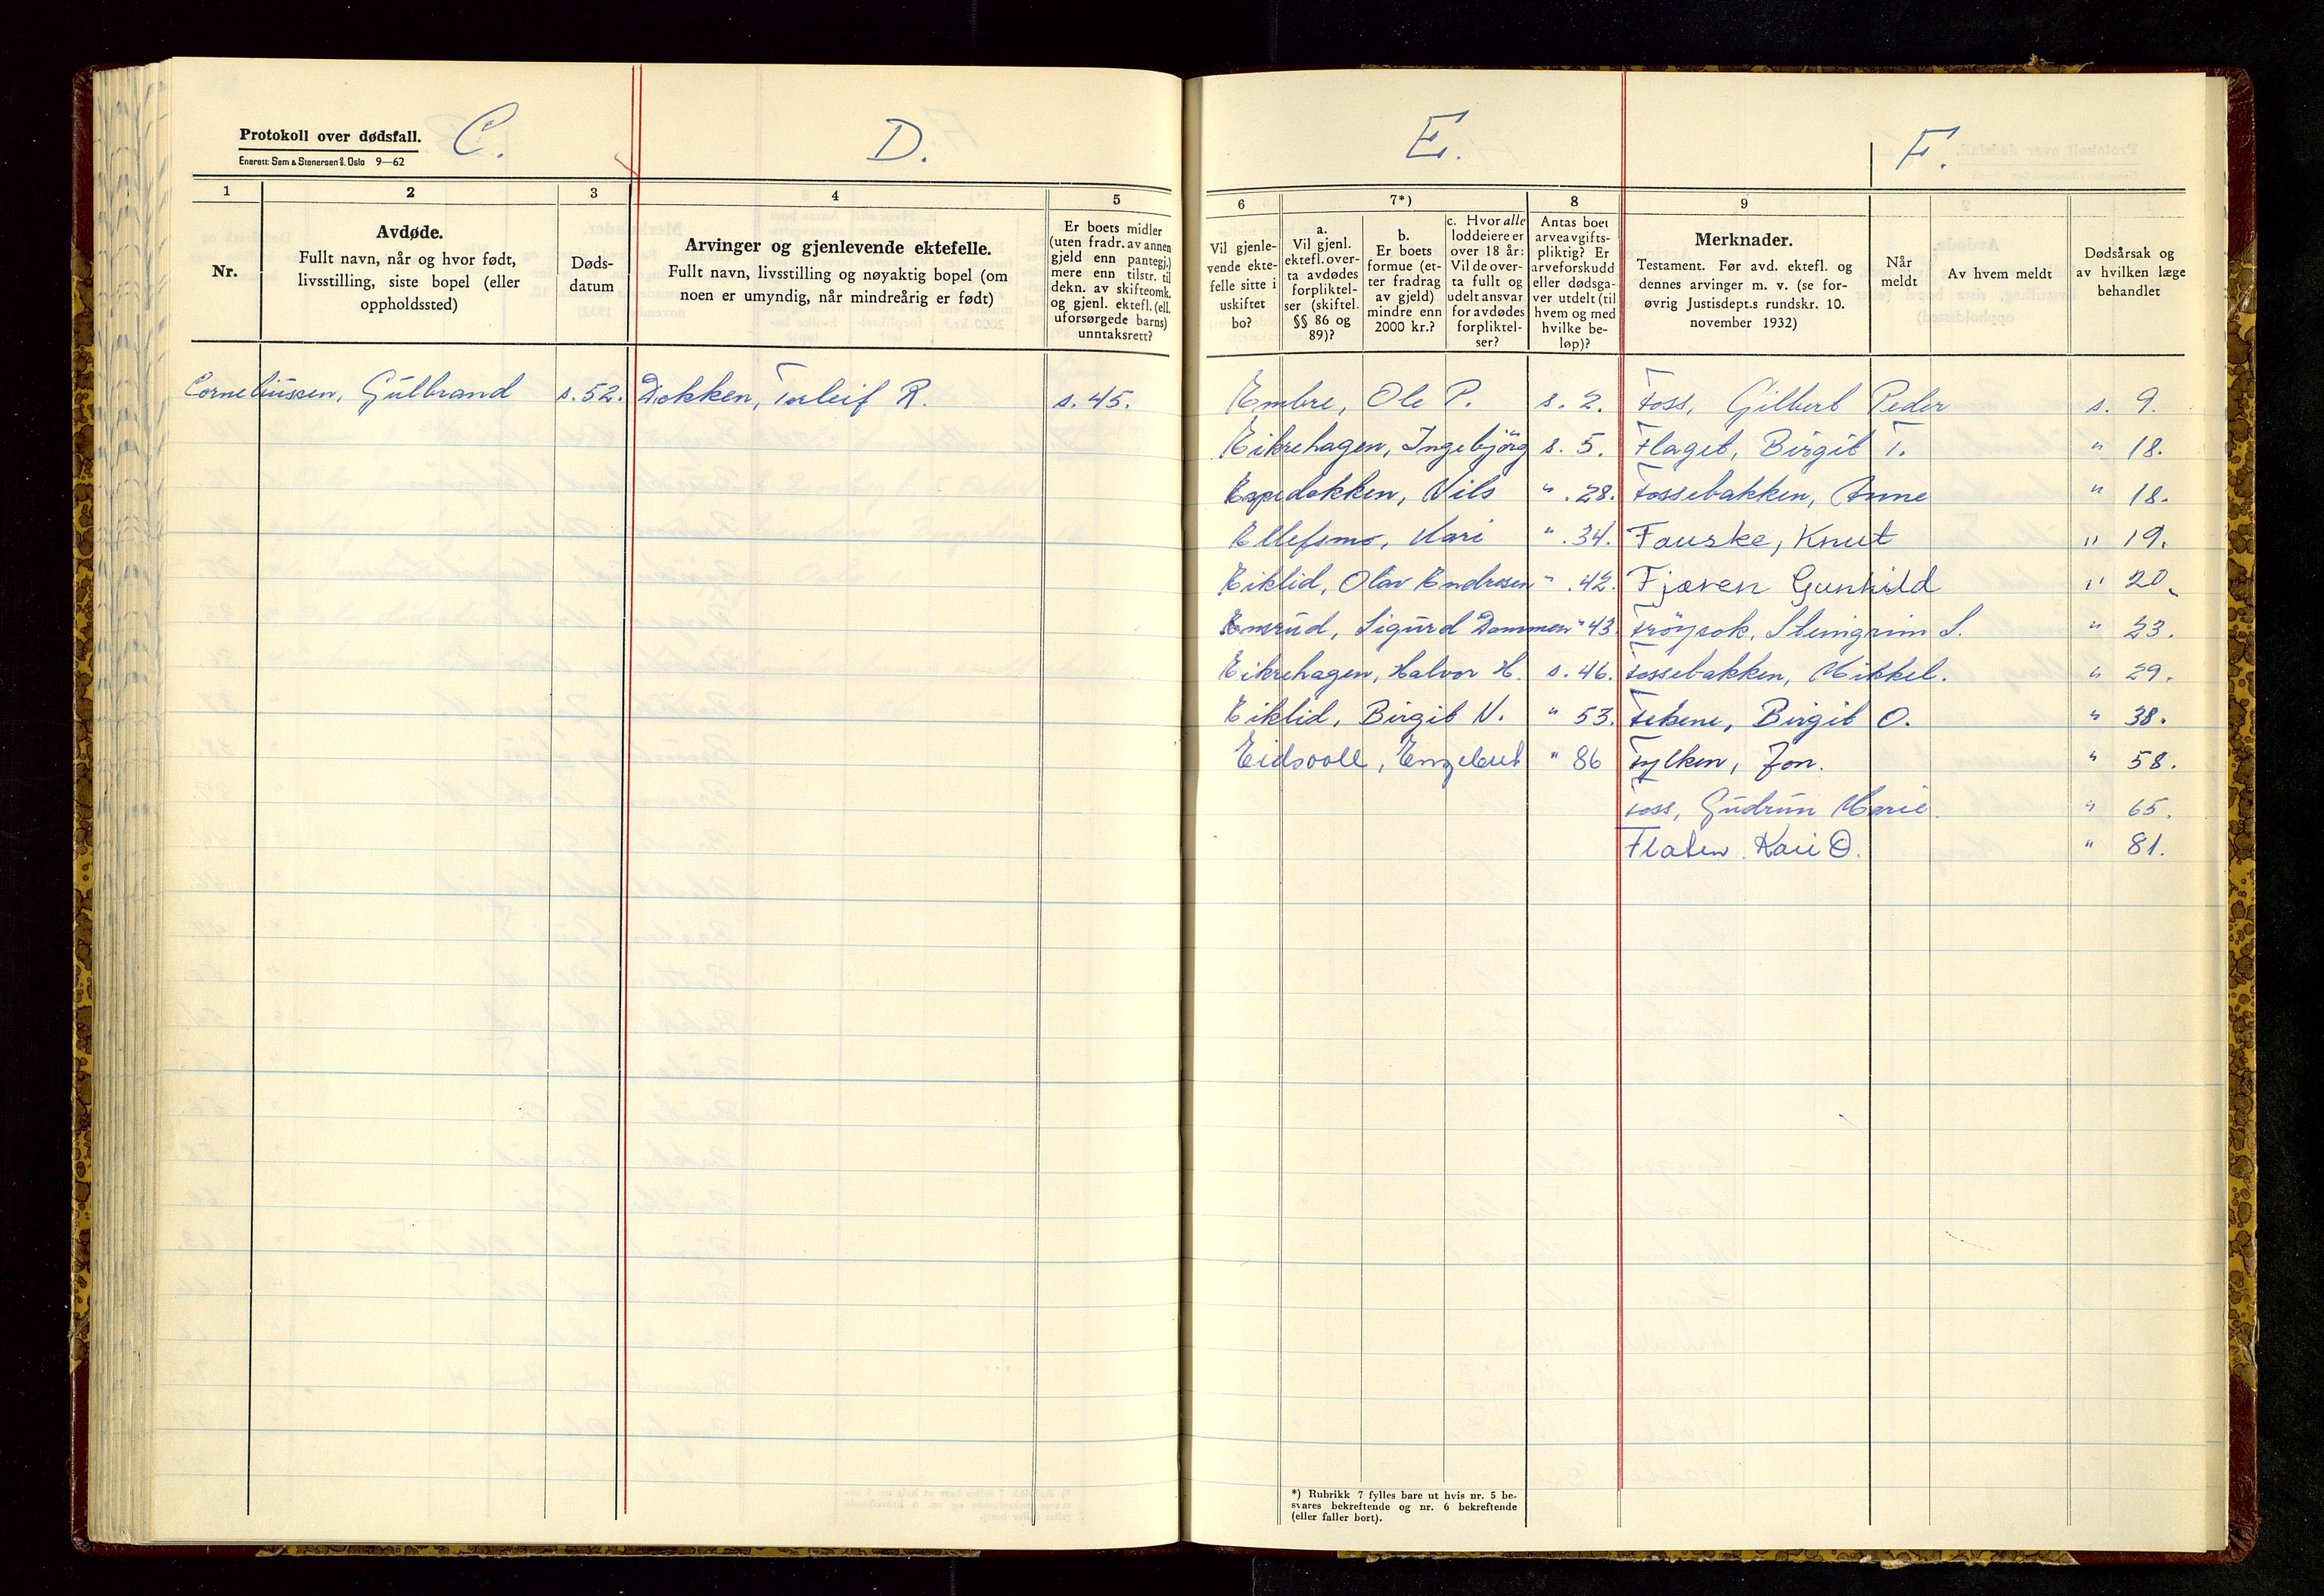 Protokoll over dødsfall.
Enerett: Sem & Stenersen Ⴥ. Oslo 9—62
C.
D.
1
2
3
4
5
Nr.
Avdøde.
Fullt navn, når og hvor født,
livsstilling, siste bopel (eller
oppholdssted)
Døds-
datum
Arvinger og gjenlevende ektefelle.
Fullt navn, livsstilling og nøyaktig bopel (om
noen er umyndig, når mindreårig er født)
Er boets midler
(uten fradr. av annen
gjeld enn pantegj.)
mere enn tilstr. til
dekn. av skifteomk.
og gjenl. ektefl. (ell.
uforsørgede barns)
unntaksrett?
Corneliussen, Gulbrand s. 52.
Dokken, Torleif R. s. 45.
E.
F.
6
7*)
8
9
Vil gjenle-
vende ekte-
felle sitte i
uskiftet
bo?
a.
Vil gjenl.
ektefl. over-
ta avdødes
forpliktel-
ser (skiftel.
§§ 86 og
89)?
b.
Er boets
formue (et-
ter fradrag
av gjeld)
mindre enn
2000 kr.?
c. Hvor alle
loddeiere er
over 18 år:
Vil de over-
ta fullt og
udelt ansvar
for avdødes
forpliktel-
ser?
Antas boet
arveavgifts-
pliktig? Er
arveforskudd
eller dødsga-
ver utdelt (til
hvem og med
hvilke be-
løp)?
Merknader.
Testament. Før avd. ektefl. og
dennes arvinger m. v. (se for-
øvrig Justisdept.s rundskr. 10.
november 1932)
Når
meldt
Av hvem meldt
Dødsårsak og
av hvilken læge
behandlet
Embre, Ole P. s. 2.
Eikrehagen, Ingebjörg s. 5.
Espedokken, Nils " . 28.
Ellefsmo, Kari " . 34.
Eiklid, Olav Endresen " . 42.
Emsrud, Sigurd Dammen " 43.
Eikrehagen, Halvor H. s. 46.
Eiklid, Birgit N. " 53.
Eidsvoll, Engebret " 86
Foss, Gilbert Peder s. 9.
Flaget, Birgit T. " 18.
Fossebakken, Anne " 18.
Fauske, Knut " 19.
Fjæren Gunhild " 20.
Fröysok, Steingrim S. " 23.
Fossebakken, Mikkel. " 29.
Fekene, Birgit O. " 38.
Fylken, Jon. " 58.
Foss, Gudrun Marie. " 65.
Flaten Kari O. " 81.
*) Rubrikk 7 fylles bare ut hvis nr. 5 be-
svares bekreftende og nr. 6 bekreftende
(eller faller bort).